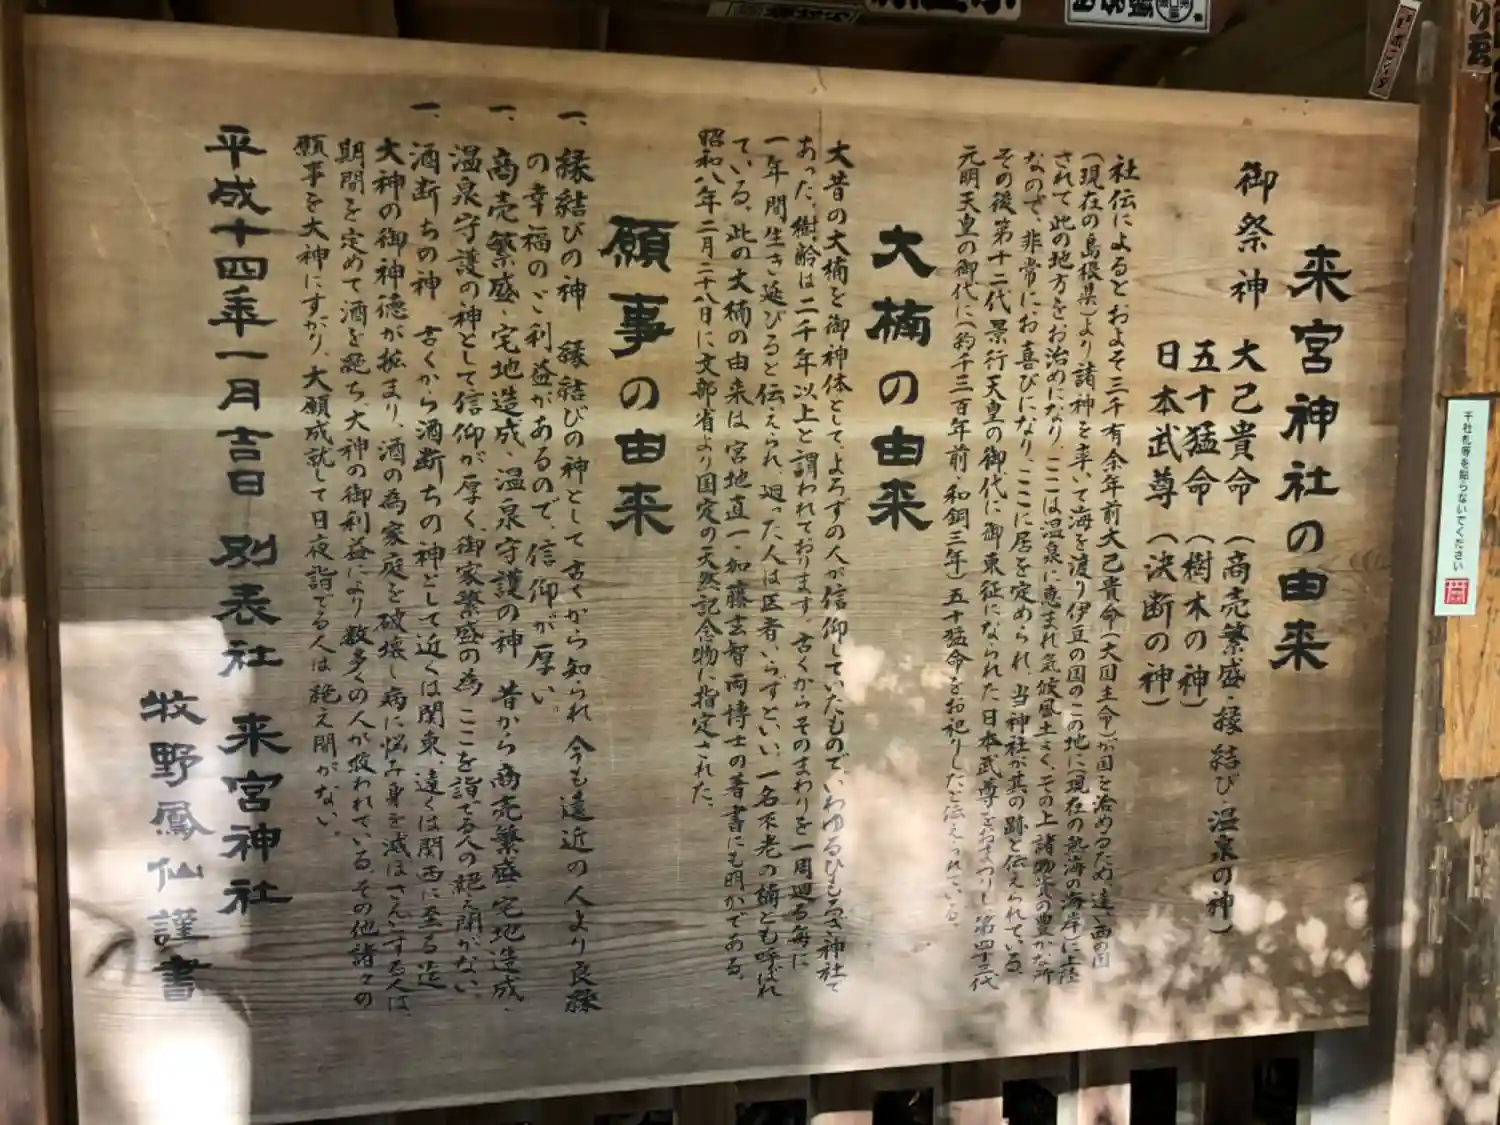 来宮神社の由来
御祭神 大己貴命(商売繁盛・縁結び・温泉の神)
五十猛命(樹木の神)
日本武尊(決断の神)
社伝によるとおよそ三千有余年前大己貴命(大国主命)が国を治めるため、遠い西の国
(現在の島根県)より諸神を率いて海を渡り伊豆の国のこの地に(現在の熱海の海岸)に上陸
されて此の地方をお治めになり、ここは温泉に恵まれ気候風土よく、その上諸物資の豊かな所
なので、非常にお喜びになり、ここに居を定められ、当神社が其の跡と伝えられている。
その後第十二代景行天皇の御代に御東征になられた日本武尊をおまつりし、第四十三代
元明天皇の御代に(約千三百年前・和銅三年)五十猛命をお祀りしたと伝えられている。
大楠の由来
大昔の大楠を御神体として、よろずの人が信仰していたもので、いわゆるひもろぎ神社で
あった。樹齢は二千年以上と謂われております。古くからそのまわりを一周廻る毎に
一年間生き延びると伝えられ、廻った人は医者いらずといい、一名不老の楠とも呼ばれ
ている。此の大楠の由来は、宮地直一・加藤玄智両博士の著書にも明かである。
昭和八年二月二十八日に文部省より国定の天然記念物に指定された。
願事の由来
一、縁結びの神 縁結びの神として古くから知られ 今も遠近の人より良縁
の幸福のご利益があるので、信仰が厚い。
一、商売繁盛・宅地造成・温泉守護の神 昔から商売繁盛・宅地造成・
温泉守護の神として信仰が厚く、御家繁盛の為 ここを詣でる人の絶え間がない。
一、酒断ちの神 古くから酒断ちの神として近くは関東、遠くは関西に至る迄
大神の御神徳が拡まり、酒の為家庭を破壊し病に悩み身を滅ぼさんとする人は、
期間を定めて酒を絶ち、大神の御利益により数多くの人が救われている。その他諸々の
願事を大神にすがり、大願成就して日夜詣でる人は絶え間がない。
平成十四年一月吉日 別表社 来宮神社
牧野鳳仙謹書
千社札等を貼らないでください